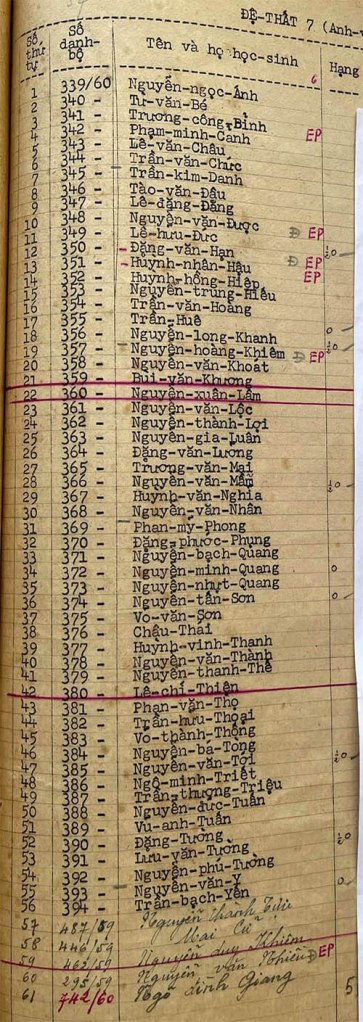 ĐỆ-THẤT 7 (Anh-v
Số thứ tự Số danh-bộ Tên và họ học-sinh Hạng
6
1 339/60 Nguyễn-ngọc-Ánh
2 340 - Từ-văn-Bé
3 341 - Trương-công-Bình
4 342 - Phạm-minh-Cảnh EP
5 343 - Lê-văn-Châu
6 344 - Trần-văn-Chức
7 345 - Trần-kim-Danh
8 346 - Tào-văn-Đậu
9 347 - Lê-đặng-Đặng
10 348 - Nguyễn-văn-Được
11 349 - Lê-hữu-Đức Đ EP
12 350 - Đặng-văn-Hạn ½0
13 351 - Huỳnh-nhân-Hậu Đ EP
14 352 - Huỳnh-hồng-Hiệp EP
15 353 - Nguyễn-trung-Hiếu
16 354 - Trần-văn-Hoàng
17 355 - Trần-Huê
18 356 - Nguyễn-long-Khanh 0
19 357 - Nguyễn-hoàng-Khiêm Đ EP ½0
20 358 - Nguyễn-văn-Khoát
21 359 - Bùi-văn-Khương
22 360 - Nguyễn-xuân-Lâm
23 361 - Nguyễn-văn-Lộc
24 362 - Nguyễn-thành-Lợi
25 363 - Nguyễn-gia-Luân
26 364 - Đặng-văn-Lương
27 365 - Trương-văn-Mai
28 366 - Nguyễn-văn-Mẫn ½0
29 367 - Huỳnh-văn-Nghĩa
30 368 - Nguyễn-văn-Nhân
31 369 - Phan-mỹ-Phong
32 370 - Đặng-phước-Phụng
33 371 - Nguyễn-bạch-Quang
34 372 - Nguyễn-minh-Quang 0
35 373 - Nguyễn-nhựt-Quang
36 374 - Nguyễn-tấn-Sơn 0
37 375 - Võ-văn-Sơn
38 376 - Châu-Thai
39 377 - Huỳnh-vinh-Thanh
40 378 - Nguyễn-văn-Thành
41 379 - Nguyễn-thanh-Thế
42 380 - Lê-chí-Thiện
43 381 - Phan-văn-Thọ
44 382 - Trần-hữu-Thoại
45 383 - Võ-thành-Thông
46 384 - Nguyễn-bá-Tòng ½0
47 385 - Nguyễn-văn-Tới
48 386 - Ngô-minh-Triết
49 387 - Trần-thượng-Triệu
50 388 - Nguyễn-đức-Tuấn
51 389 - Vũ-anh-Tuấn
52 390 - Đặng-Tường ½0
53 391 - Lưu-văn-Tường
54 392 - Nguyễn-phú-Tường
55 393 - Nguyễn-văn-Y 0
56 394 - Trần-bạch-Yến
57 487/59 Nguyễn thành
58 446/59 Mai Cú
59 463/59 Nguyễn duy Khiêm
60 295/59 Nguyễn văn Nhiều Đ EP
61 742/60 Ngô đình Giang 5